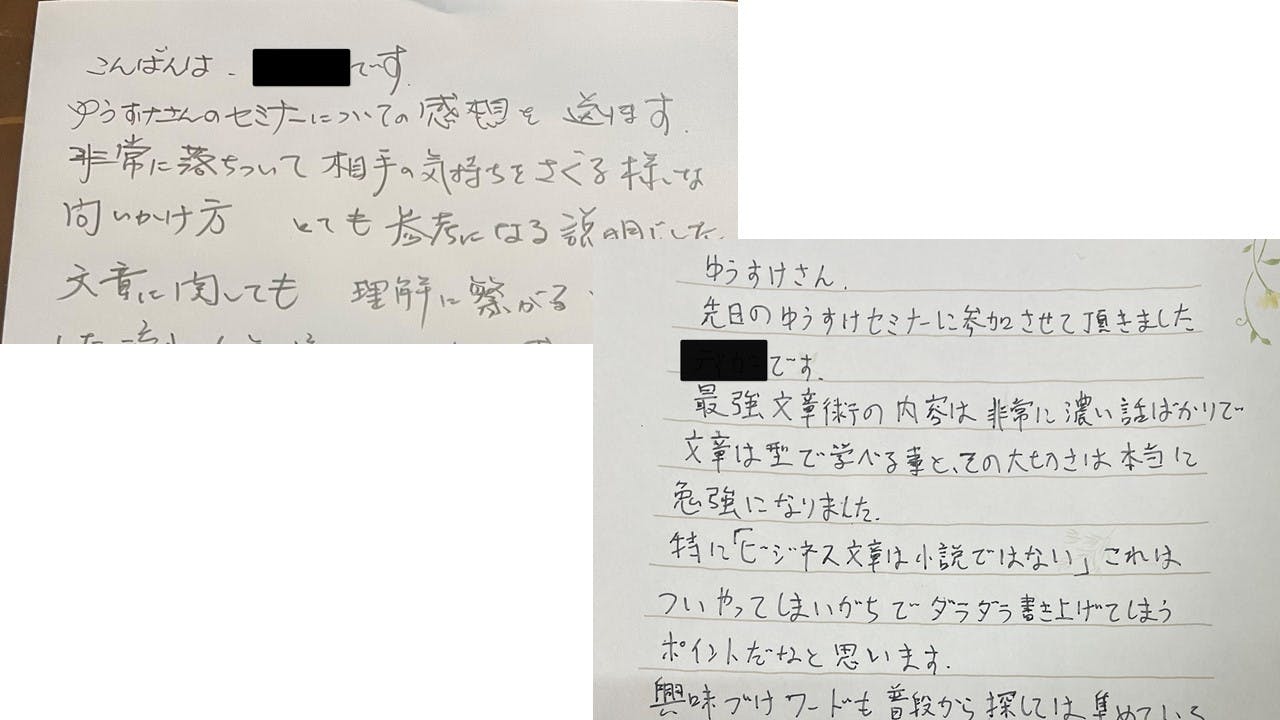 こんばんは、
です。
ゆうすけさんのセミナーについての感想を送ります。
非常に落ちついて相手の気持ちをさぐる様な
問いかけ方 とても参考になる説明でした
文章に関しても 理解に繋がる
ゆうすけさん。
先日のゆうすけセミナーに参加させて頂きました
です。
最強文章術の内容は非常に濃い話ばかりで
文章は型で学べる事と、その大切さは本当に
勉強になりました。
特に「ビジネス文章は小説ではない」これは
ついやってしまいがちでダラダラ書き上げてしまう
ポイントだなと思います。
興味づけワードも普段から探しては集めている